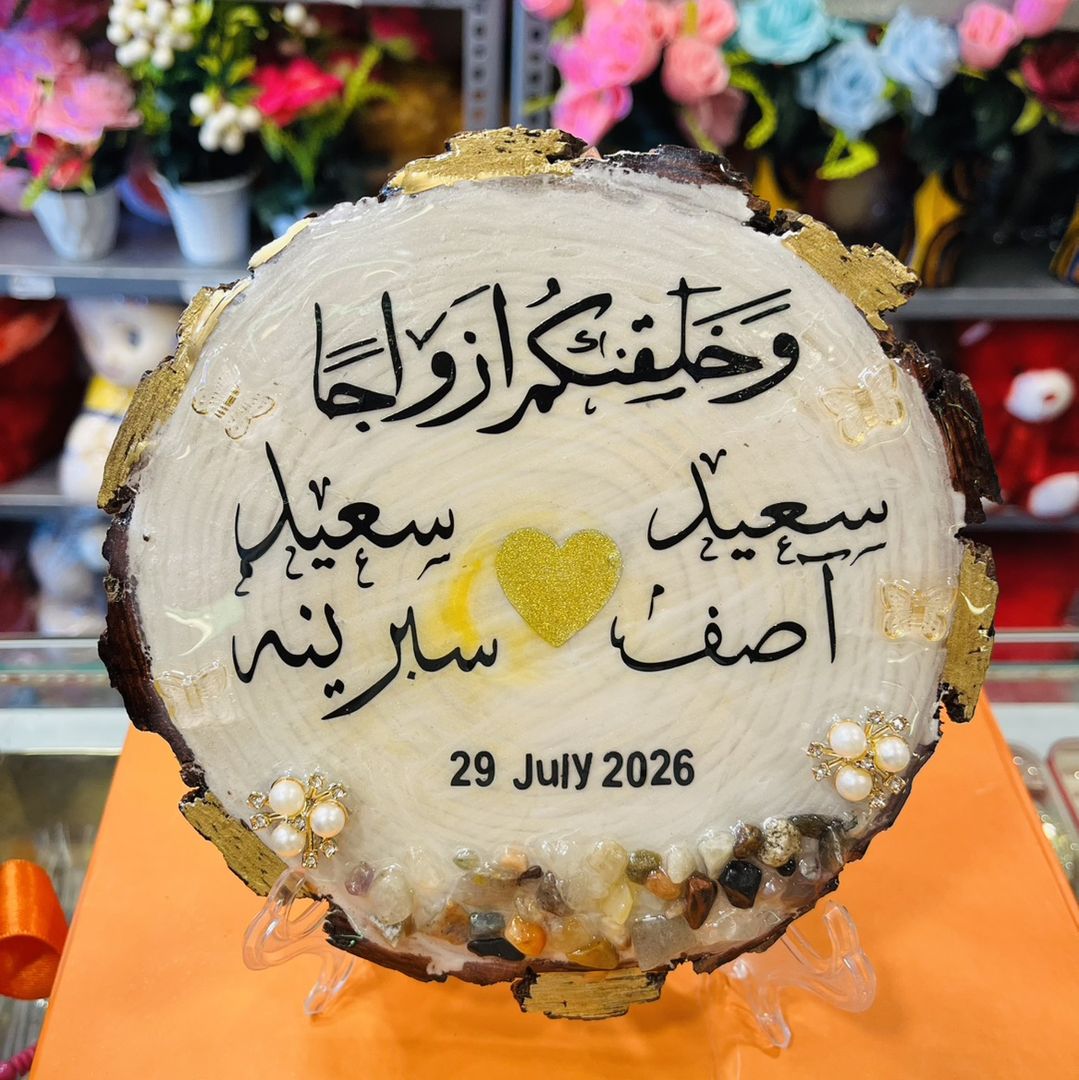 وَخَلَقنكم ازواجًا
سعيد سعيد
آصف سبرينه
29 July 2026